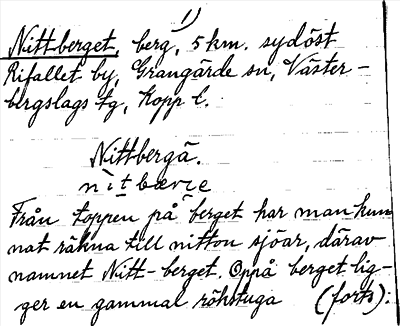 1)
Nittberget, berg, 5 km. sydöst
Rifallet by, Grangärde sn, Väster-
bergslags tg, Kopp l.
Nittbergä.
Från toppen på berget har man kun
nat räkna till nitton sjöar, därav
namnet Nitt-berget. Oppå berget lig-
ger en gammal röhstuga (forts).